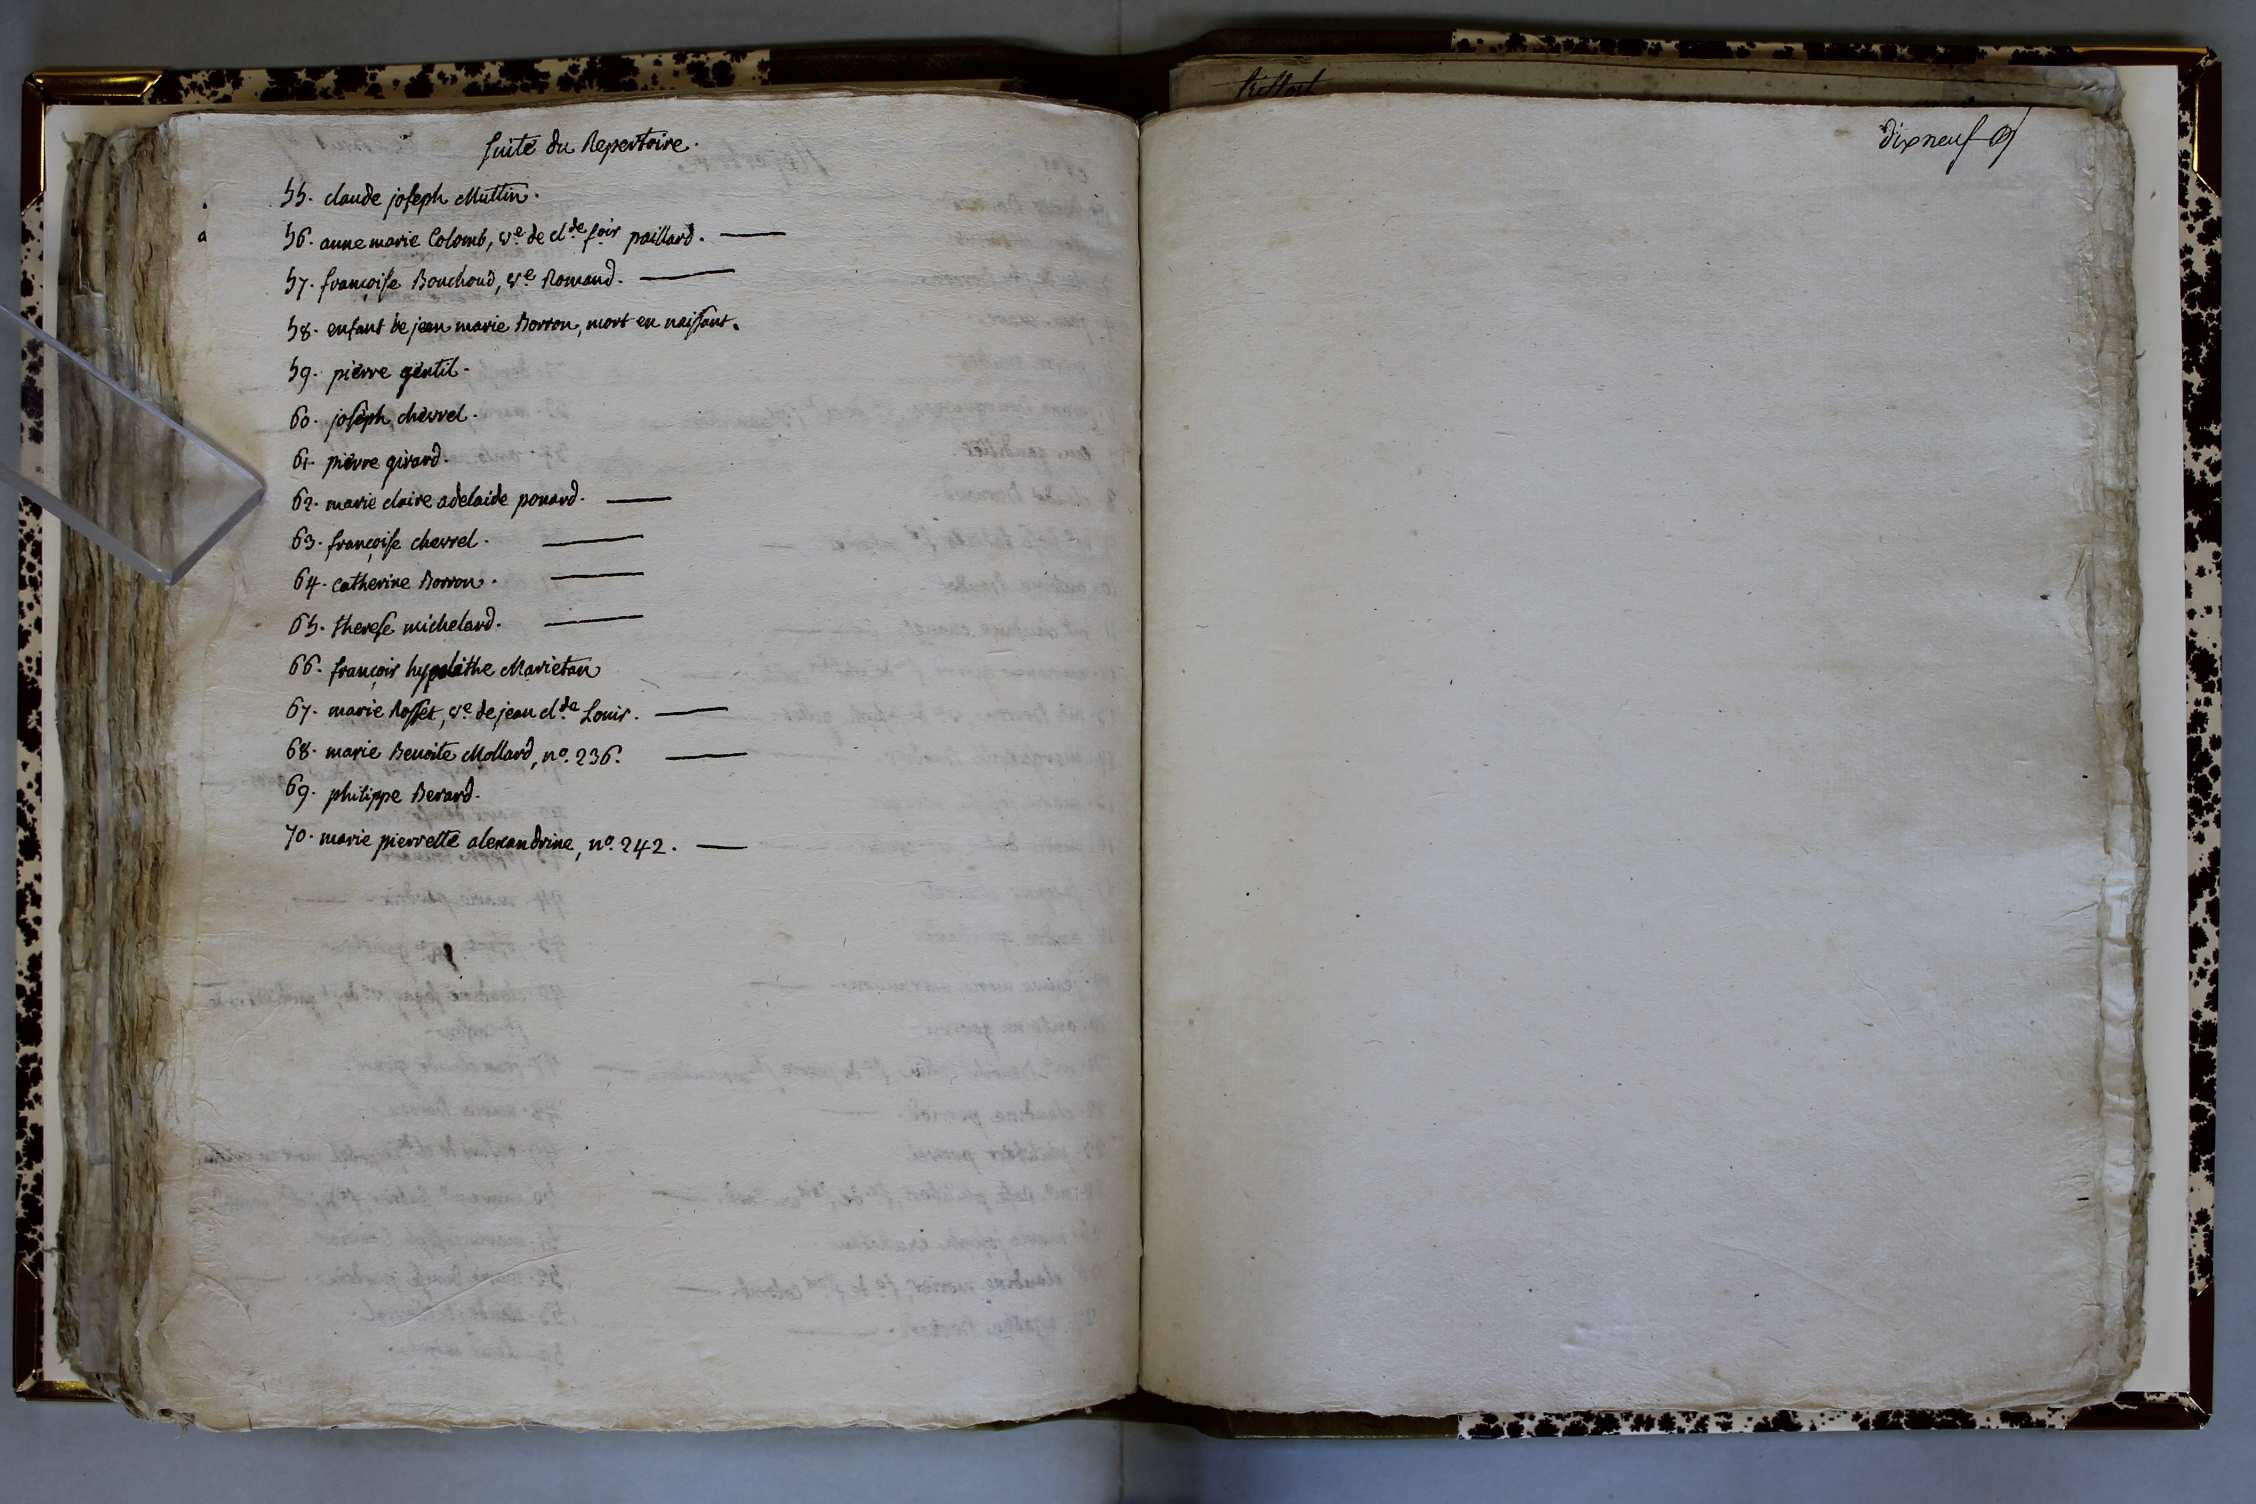 Suite du Repertoire.
55. claude joseph Muttin.
56. anne marie Colomb, ve. de clde. fois paillard.
57. françoise Bouchoud, ve Romand.
58. enfant de jean marie Borron, mort en naissant.
59. pierre gentil.
60. joseph chevrel.
61. pierre girard.
62. marie claire adelaide ponard.
63. françoise chevrel.
64. catherine Borron.
65. therese michelard.
66. françois hypolithe Marietan
67. marie Rosset, ve. de jean clde Louis.
68. marie Benoite Mollard, no. 236.
69. philippe Berard.
70. marie pierrette alexandrine, no. 242.
dixneuf